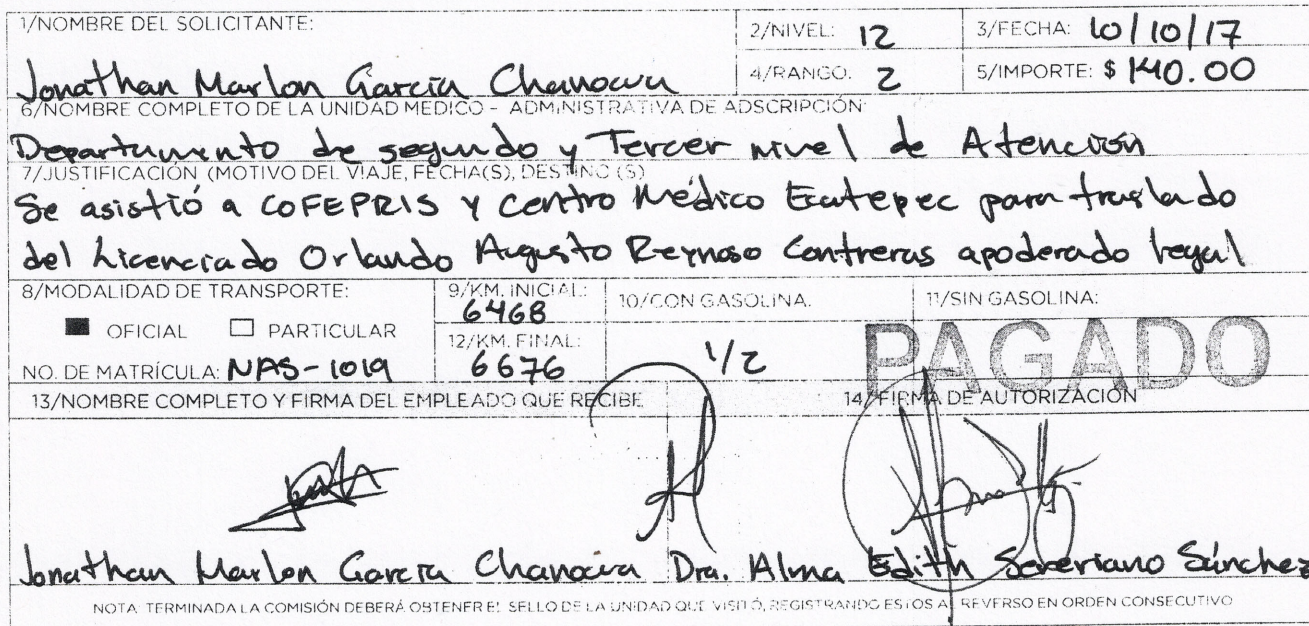 1/NOMBRE DEL SOLICITANTE:
Jonathan Marlon García
2/NIVEL: 12
3/FECHA: 10/10/17
4/RANGO: 2
5/IMPORTE: $ 140.00
6/NOMBRE COMPLETO DE LA UNIDAD MEDICO - ADMINISTRATIVA DE ADSCRIPCIÓN:
Departamento de segundo y Tercer nivel de Atención
7/JUSTIFICACIÓN (MOTIVO DEL VIAJE, FECHA(S), DESTINO (S)
Se asistió a COFEPRIS y Centro Médico Ecatepec para traslado
del Licenciado Orlando Augusto Reynoso Contreras apoderado legal
8/MODALIDAD DE TRANSPORTE:
■ OFICIAL □ PARTICULAR
NO. DE MATRÍCULA: NAS-1019
9/KM. INICIAL:
6468
12/KM. FINAL:
6676
10/CON GASOLINA:
1/2
11/SIN GASOLINA:
PAGADO
13/NOMBRE COMPLETO Y FIRMA DEL EMPLEADO QUE RECIBE
14/FIRMA DE AUTORIZACIÓN
Jonathan Marlon García Dra. Alma Edith Soberiano Sánchez
NOTA: TERMINADA LA COMISIÓN DEBERÁ OBTENER EL SELLO DE LA UNIDAD QUE VISITÓ, REGISTRANDO ESTOS AL REVERSO EN ORDEN CONSECUTIVO